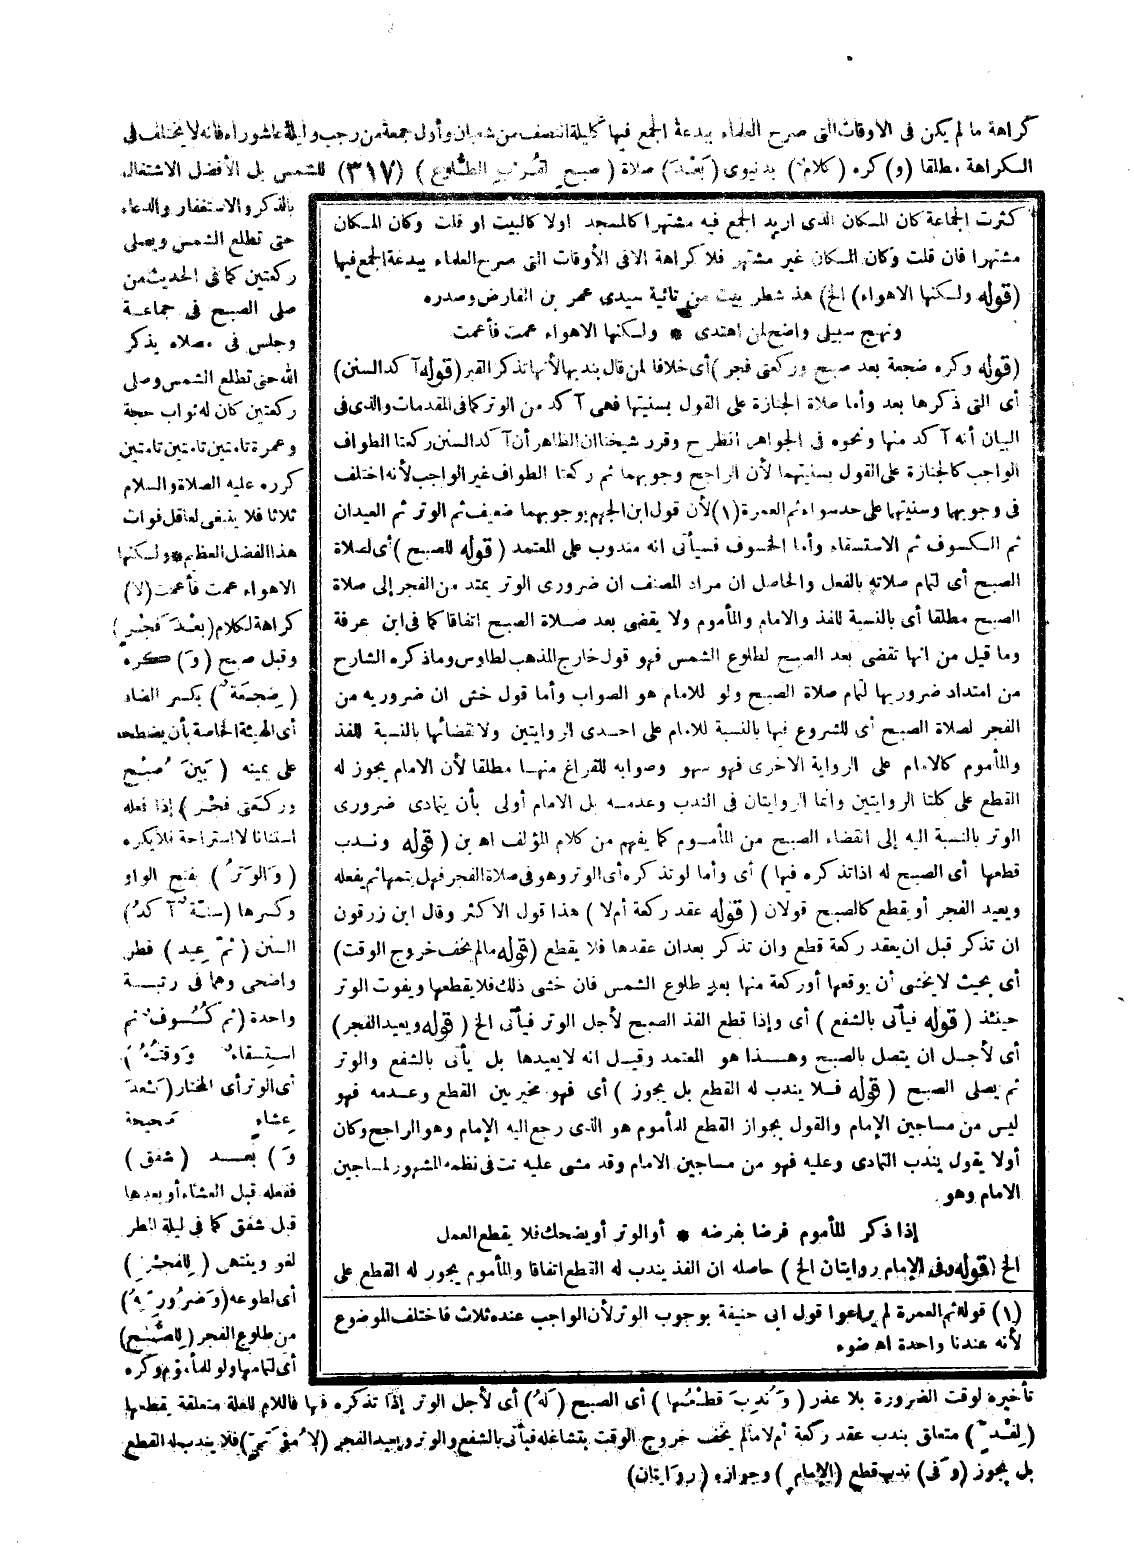 كراهة ما لم يكن فى الاوقات التى صرح العلماء ببدعة الجمع فيها كليلة النصف من شعبان وأول جمعة من رجب وليلة عاشوراء فانه لا يختلف فى
الكراهة مطلقا (و) كره (كلامٌ) بدنيوى (بَعْدَ) صلاة (صبحٍ لقُربِ الطُّلوع) (٣١٧) للشمس بل الأفضل الاشتغال
بالذكر والاستغفار والدعاء
حتى تطلع الشمس ويصلى
ركعتين كما فى الحديث من
صلى الصبح فى جماعة
وجلس فى مصلاه يذكر
الله حتى تطلع الشمس وصلى
ركعتين كان له ثواب حجة
وعمرة تامتين تامتين تامتين
كرره عليه الصلاة والسلام
ثلاثا فلا ينبغى لعاقل فوات
هذا الفضل العظيم * ولكنها
الاهواء عمت فأعمت (لا)
كراهة لكلام (بعْدَ فَجْرٍ)
وقبل صبح (وَ) كره
(ضِجعَةٌ) بكسر الضاد
أى الهيئة الخاصة بأن يضطجع
على يمينه (بَينَ صُبْحٍ
وركعَتى فَجْرٍ) إذا فعله
استنانا لا استراحة فلا يكره
(وَالوَترُ) بفتح الواو
وكسرها (سنةٌ آكدُ)
السنن (ثمّ عِيد) فطر
واضحى وهما فى رتبة
واحدة (ثم كُسُوفٌ ثم
استِسقاءٌ وَوقتُهُ)
أى الوتر أى المختار (بَعْدَ
عِشاءٍ صَحيحة
وَ) بعد (شفق)
ففعله قبل العشاء أو بعدها
قبل شفق كما فى ليلة المطر
لغو وينتهى (لِلفَجْرِ)
أى لطلوعه (وَضرُوريّهُ)
من طلوع الفجر (لِلصُّبْحِ)
أى لتمامها ولو للمأموم وكره
كثرت الجماعة كان المكان الذى اريد الجمع فيه مشتهرا كالمسجد اولا كالبيت او قلت وكان المكان
مشتهرا فان قلت وكان المكان غير مشتهر فلا كراهة الا فى الأوقات التى صرح العلماء ببدعة الجمع فيها
(قوله ولكنها الاهواء) الخ) هذ شطر بيت من تائية سيدى عمر بن الفارض وصدره
ونهج سبيلى واضح لمن اهتدى * ولكنها الاهواء عمت فأعمت
(قوله وكره ضجعة بعد صبح وركعتى فجر) أى خلافا لمن قال بندبها لأنها تذكر القبر (قوله آكد السنن)
أى التى ذكرها بعد وأما صلاة الجنازة على القول بسنيتها فهى آكد من الوتر كما فى المقدمات والذى فى
البيان أنه آكد منها ونحوه فى الجواهر انظر ح وقرر شيخنا ان الظاهر أن آكد السنن ركعتا الطواف
الواجب كالجنازة على القول بسنيتهما لأن الراجح وجوبهما ثم ركعتا الطواف غير الواجب لأنه اختلف
فى وجوبها وسنيتها على حد سواء ثم العمرة (١) لأن قول ابن الجهم بوجوبهما ضعيف ثم الوتر ثم العيدان
ثم الكسوف ثم الاستسقاء وأما الخسوف فسيأتى انه مندوب على المعتمد (قوله للصبح) أى لصلاة
الصبح أى لتمام صلاته بالفعل والحاصل ان مراد المصنف ان ضرورى الوتر يمتد من الفجر إلى صلاة
الصبح مطلقا أى بالنسبة للفذ والامام والمأموم ولا يقضى بعد صلاة الصبح اتفاقا كما فى ابن عرفة
وما قيل من انها تقضى بعد الصبح لطلوع الشمس فهو قول خارج المذهب لطاوس وما ذكره الشارح
من امتداد ضروريها لتمام صلاة الصبح ولو للامام هو الصواب وأما قول خش ان ضروريه من
الفجر لصلاة الصبح أى للشروع فيها بالنسبة للامام على احدى الروايتين ولانقضائها بالنسبة للفذ
والمأموم كالامام على الرواية الاخرى فهو سهو وصوابه للفراغ منها مطلقا لأن الامام يجوز له
القطع على كلتا الروايتين وانما الروايتان فى الندب وعدمه بل الامام أولى بأن يتمادى ضرورى
الوتر بالنسبة اليه إلى انقضاء الصبح من المأموم كما يفهم من كلام المؤلف اه بن (قوله وندب
قطعها أى الصبح له اذا تذكره فيها) أى وأما لو تذكره أى الوتر وهو فى صلاة الفجر فهل يتمها ثم يفعله
ويعيد الفجر أو يقطع كالصبح قولان (قوله عقد ركعة أم لا) هذا قول الاكثر وقال ابن زرقون
ان تذكر قبل ان يعقد ركعة قطع وان تذكر بعد ان عقدها فلا يقطع (قوله مالم يخف خروج الوقت)
أى بحيث لا يخشى أن يوقعها أو ركعة منها بعد طلوع الشمس فان خشى ذلك فلا يقطعها ويفوت الوتر
حينئذ (قوله فيأتى بالشفع) أى وإذا قطع الفذ الصبح لأجل الوتر فيأتى الخ (قوله ويعيد الفجر)
أى لأجل ان يتصل بالصبح وهذا هو المعتمد وقيل انه لا يعيدها بل يأتى بالشفع والوتر
ثم يصلى الصبح (قوله فلا يندب له القطع بل يجوز) أى فهو مخير بين القطع وعدمه فهو
ليس من مساجين الإمام والقول بجواز القطع للمأموم هو الذى رجع اليه الإمام وهو الراجح وكان
أولا يقول يندب التمادى وعليه فهو من مساجين الامام وقد مشى عليه تت فى نظمه المشهور لمساجين
الامام وهو
إذا ذكر المأموم فرضا بفرضه * أو الوتر أو يضحك فلا يقطع العمل
الخ (قوله وفى الإمام روايتان الخ) حاصله ان الفذ يندب له القطع اتفاقا والمأموم يجوز له القطع على
(١) قوله ثم العمرة لم يراعوا قول ابى حنيفة بوجوب الوتر لأن الواجب عنده ثلاث فاختلف الموضوع
لأنه عندنا واحدة اه ضوء
تأخيره لوقت الضرورة بلا عذر (وَنُدِبَ قطْعُها) أى الصبح (لهُ) أى لأجل الوتر إذا تذكره فيها فاللام للعلة متعلقة بقطعها
(لِفْذٍّ) متعلق بندب عقد ركعة أم لا مالم يخف خروج الوقت بتشاغله فيأتى بالشفع والوتر ويعيد الفجر (لا مُؤتَمٍّ) فلا يندب له القطع
بل يجوز (وَفى) ندب قطع (الإمامِ) وجوازه (روَايتان)